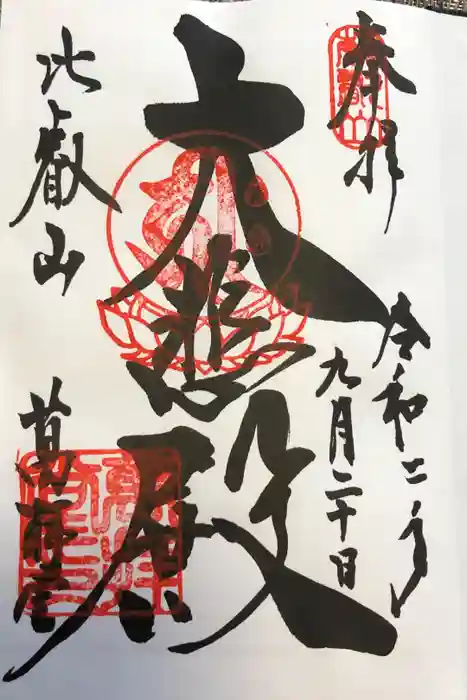 奉拝
令和二年
九月二十日
大悲殿
比叡山
萬拝堂